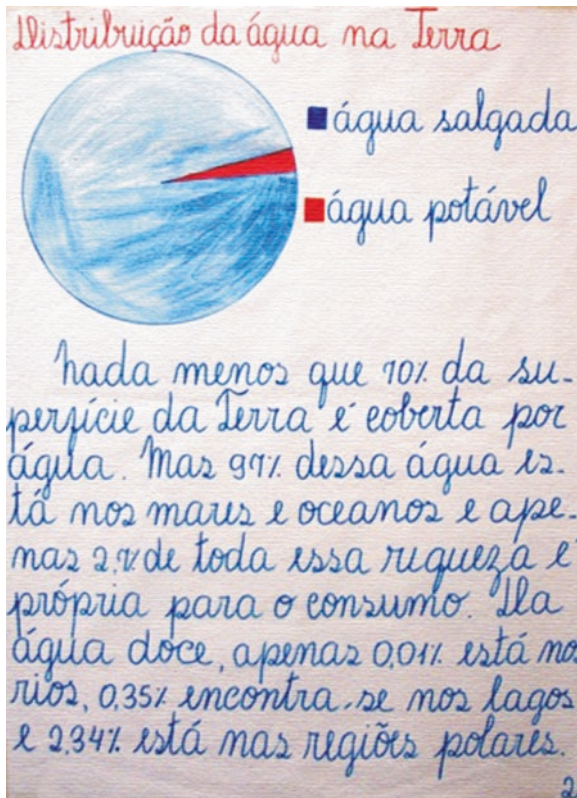 Distribuição da água na Terra
água salgada
água potável
Nada menos que 70% da su-
perfície da Terra é coberta por
água. Mas 97% dessa água es-
tá nos mares e oceanos e ape-
nas 2,% de toda essa riqueza é
própria para o consumo. Da
água doce, apenas 0,01% está nos
rios, 0,35% encontra-se nos lagos
e 2,34% está nas regiões polares.
2